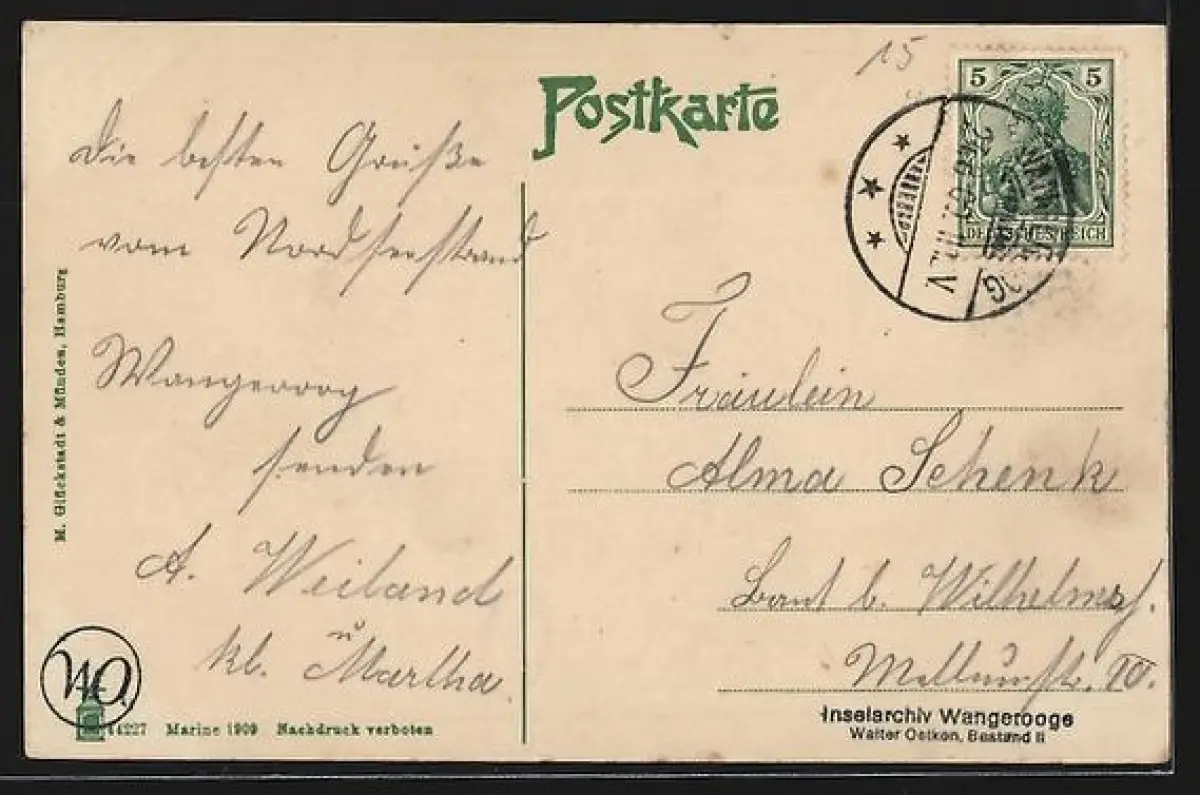 Postkarte
15
5 5
DEUTSCHES REICH
Die besten Grüße
vom Nordseestrand
Wangeroog
senden
A. Weiland
u
kl. Martha.
Fräulein
Alma Schenk
Bant b. Wilhelmsh.
M. Glückstadt & Münden, Hamburg
WO.
44227 Marine 1909 Nachdruck verboten
Inselarchiv Wangerooge
Walter Oetken, Bestand II